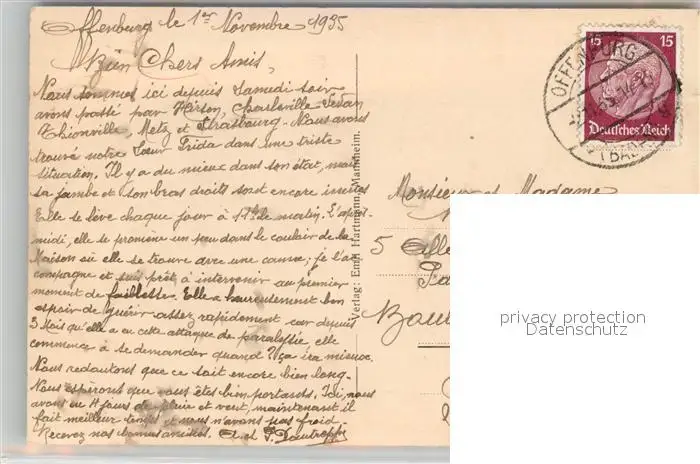 Offenburg le 1er Novembre 1935
Bien Chers Amis,
Nous sommes ici depuis Samedi soir
avons passé par Hirson, Charleville-Sedan
Thionville, Metz et Strasbourg - Nous avons
trouvé notre Sœur Frida dans une triste
situation. Il y a du mieux dans son état, mais
sa jambe et son bras droits sont encore inertes
Elle se lève chaque jour à du matin. L'après-
midi, elle se promène un peu dans le couloir de la
Maison où elle se trouve avec une canne; je l'ac-
compagne et suis prêt à intervenir au premier
moment de faiblesse. Elle a heureusement bon
espoir de guérir assez rapidement car depuis
3 Mois qu'elle a eu cette attaque de paralysie, elle
commence à se demander quand? ça ira mieux.
Nous redoutons que ce soit encore bien long-
Nous espérons que vous êtes bien portants. Ici, nous
avons eu 4 jours de pluie et vent, maintenant il
fait meilleur temps et nous n'avons pas froid-
Recevez nos bonnes amitiés.
Verlag: Emil Hartmann, Mannheim.
15 15
Deutsches Reich
OFFENBURG
(BADEN)
Monsieur et Madame
5
privacy protection
Datenschutz